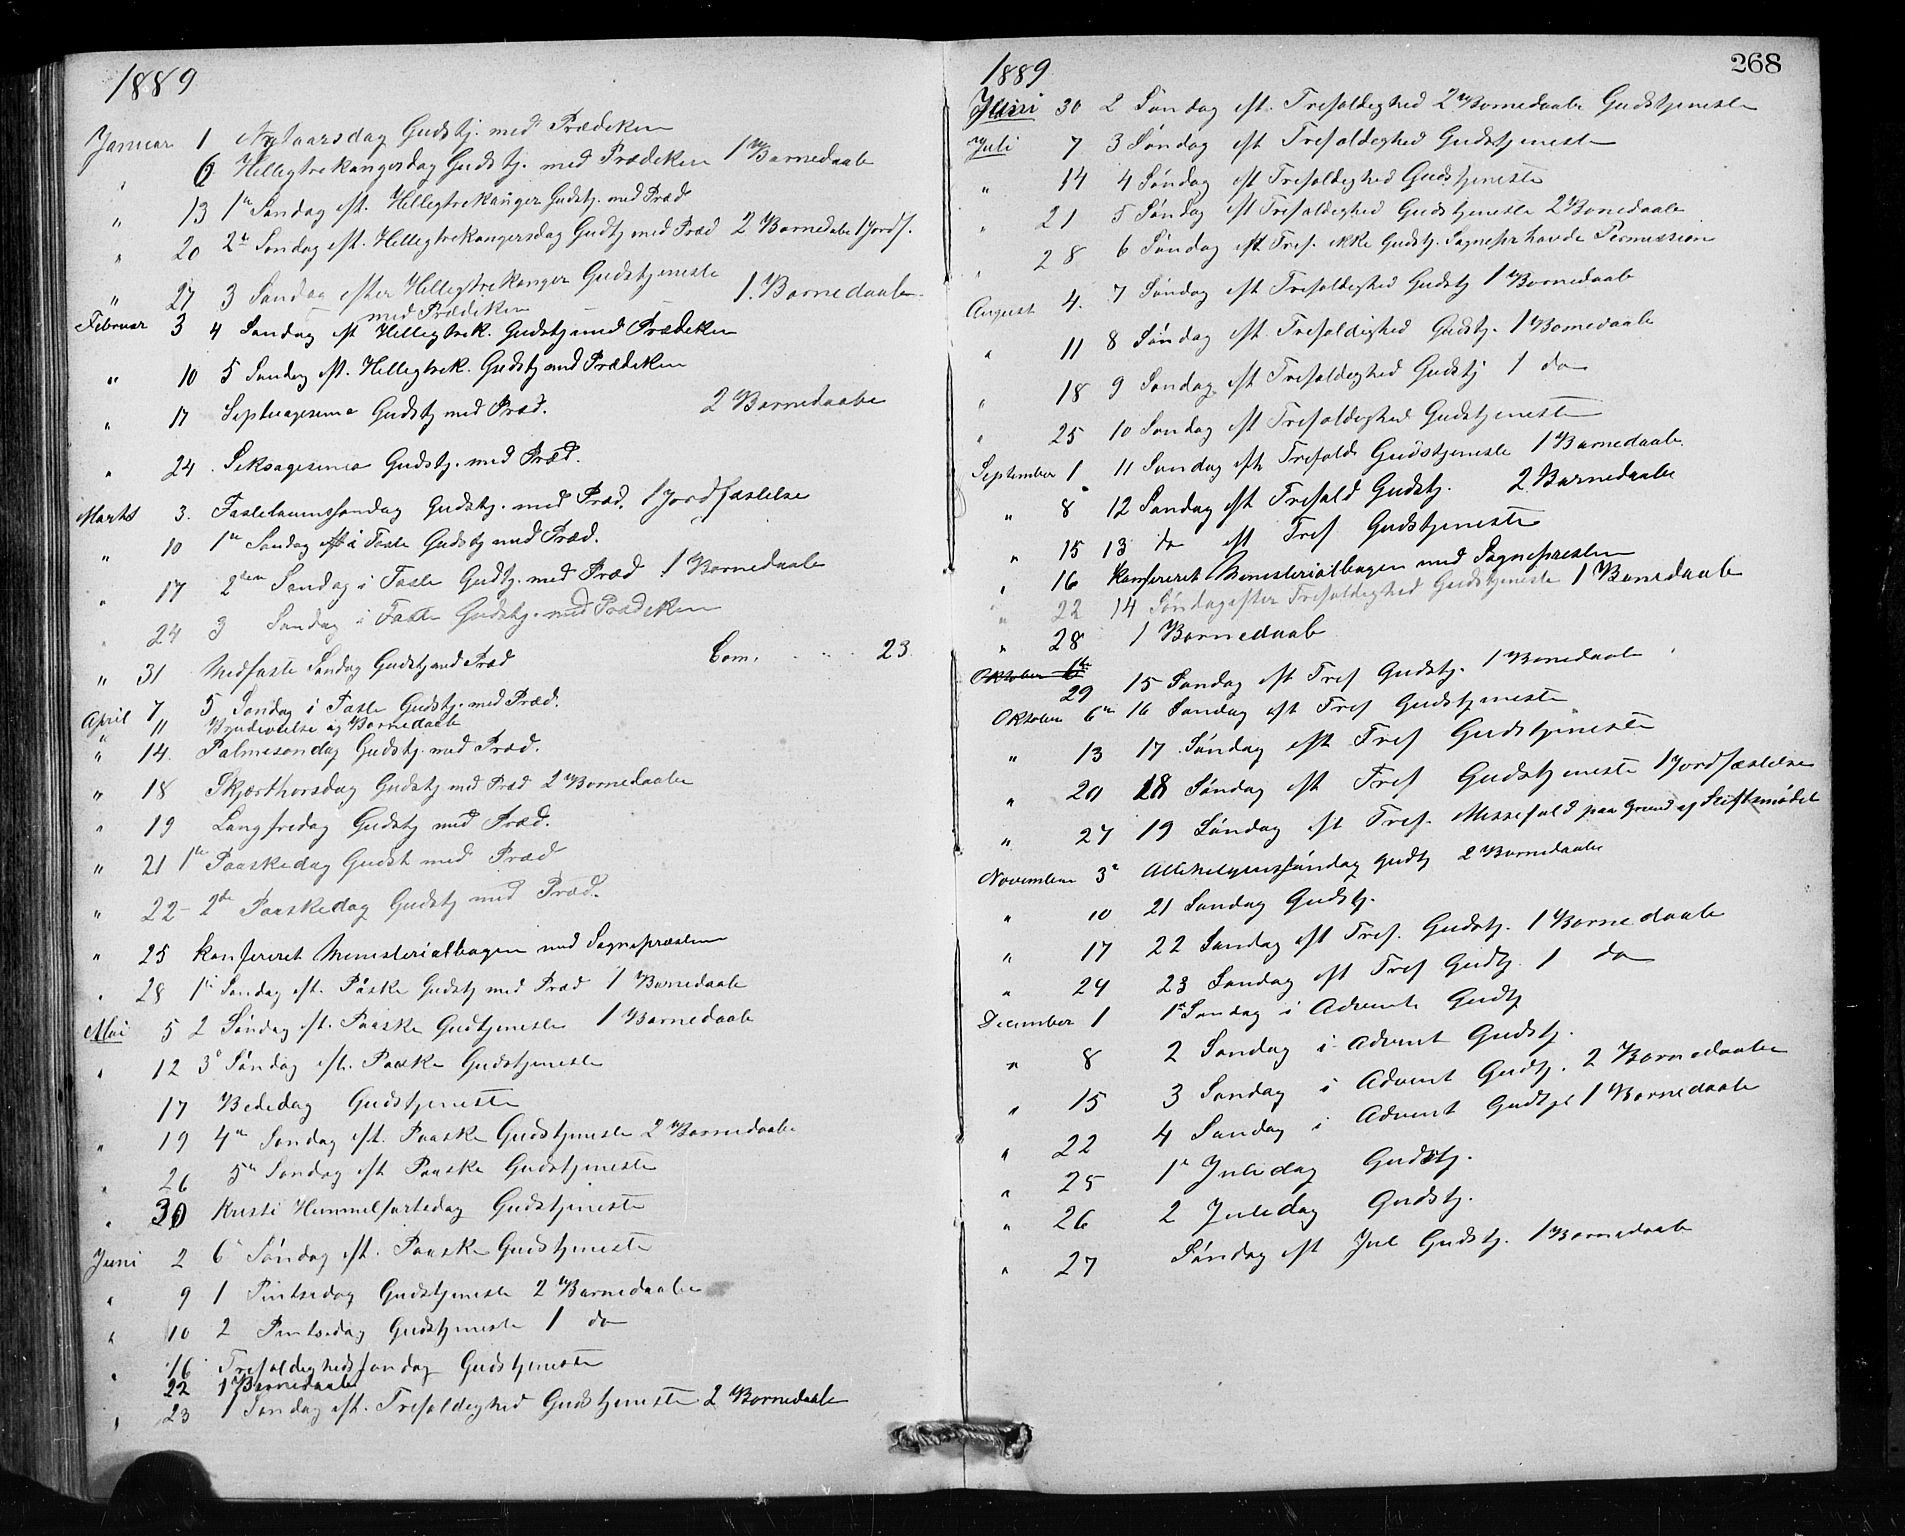 1889
Januar 1 Nytaarsdag Gudstj. med Prædeken
" 6 Helligtrekongersdag Gudstj. med Prædeken 1 Barnedaab
" 13 1ste Søndag eft. Helligtrekonger Gudstj. med Præd
" 20 2n Søndag eft. Helligtrekongersdag Gudtj med Præd 2 Barnedabe 1 Jordf.
" 27 3 Søndag efter Helligtrekonger Gudstjeneste 1. Barnedaab
med Prædeken
Februar 3 4 Søndag eft Helligtrek. Gudstj med Prædeken
" 10 5 Søndag eft. Helligtrek. Gudstj med Prædeken
" 17 Septuagesima Gudstj med Præd. 2 Barnedaabe
" 24. Seksagesima Gudstj. med Præd.
Marts 3. Fastelavnssøndag Gudstj. med Præd. 1 Jordfæstelse
" 10 1ste Søndag i Faste Gudstj med Præd.
" 17 2den Søndag i Faste Gudtj. med Præd 1 Barnedaab
" 24 3 Søndag i Faste Gudstj. med Prædeken
" 31 Midfaste Søndag Gudstj med Præd Com. 23.
April 7 5 Søndag i Faste Gudstj. med Præd.
" 11 Brudevielse og Barnedaab
" 14. Palmesøndag Gudstj. med Præd.
" 18 Skjærthorsdag Gudstj med Præd 2 Barnedaabe
" 19 Langfredag Gudstj med Præd.
" 21 1ste Paaskedag Gudst med Præd
" 22 - 2de Paaskedag Gudstj med Præd.
" 25 Konfereret Ministerialbogen med Sognepræsten
" 28 1ste Søndag eft. Påske Gudstj med Præd 1 Barnedaab
Mai 5 2 Søndag eft. Paaske Gudtjeneste 1 Barnedaab
" 12 3 Søndag eft. Paaske Gudstjeneste
17 Bededag Gudstjeneste
" 19 4n Søndag eft. Paaske Gudstjeneste 2 Barnedaabe
" 26 5n Søndag eft Paaske Gudstjeneste
" 30 Kristi Himmelfartsdag Gudstjeneste
Juni 2 6 Søndag eft. Paaske Gudstjeneste
" 9 1 Pintsedag Gudstjeneste 2 Barnedaabe
" 10 2 Pintsedag Gudstjeneste 1 do
" 16 Trefoldighedssøndag Gudstjeneste
22 1 Barnedaab
" 23 1 Søndag eft. Trefoldighed Gudstjeneste 2 Barnedaabe
268
1889
Juni 30 2 Søndag eft. Trefoldighed 2 Barnedaabe Gudstjeneste
Juli 7 3 Søndag eft Trefoldighed Gudstjeneste
" 14 4 Søndag eft Trefoldighed Gudstjeneste
" 21 5 Søndag eft Trefoldighed Gudstjeneste 2 Barnedaabe
" 28 6 Søndag eft Tref. ikke Gudstj. Sognepr havde Permission
August 4. 7 Søndag eft Trefoldighed Gudstj 1 Barnedaab
" 11 8 Søndag eft. Trefoldighed Gudstj. 1 Barnedaab
" 18 9 Søndag eft Trefoldighed Gudstj 1 do
" 25 10 Søndag eft Trefoldighed Gudstjeneste
September 1 11 Søndag eft Trefoldh Gudstjeneste 1 Barnedaab.
" 8 12 Søndag eft Trefold Gudstj. 2 Barnedaabe
" 15 13 do eft Tref Gudstjeneste
" 16 Konfereret Ministerialbogen med Sognepresten
" 22 14 Søndag efter Trefoldighed Gudstjeneste 1 Barnedaab
" 28 1 Barnedaab
Oktober 6te
29 15 Søndag eft Tref Gudstj. 1 Barnedaab
Oktober 6te 16 Søndag eft Tref Gudstjeneste
" 13 17 Søndag eft Tref Gudstjeneste
" 20 18 Søndag eft Tref Gudstjeneste 1 Jordfæstelse
" 27 19 Søndag eft Tref. Messefald paa Grund af Stiftsmødet
November 3 Allehelgenssøndag Gudtj 2 Barnedaabe
" 10 21 Søndag Gudstj.
" 17 22 Søndag eft Tref. Gudstj. 1 Barnedaab
" 24 23 Søndag eft Tref Gudtj. 1 do
December 1 1ste Søndag i Advent Gudtj
" 8 2 Søndag i Advent Gudstj.
" 15 3 Søndag i Advent Gudtj. 2 Barnedaabe
" 22 4 Søndag i Advent Gudtj 1 Barnedaab
" 25 1ste Juledag Gudstj.
" 26 2 Juledag Gudstj.
" 27 Søndag eft Jul Gudstj. 1 Barnedaab